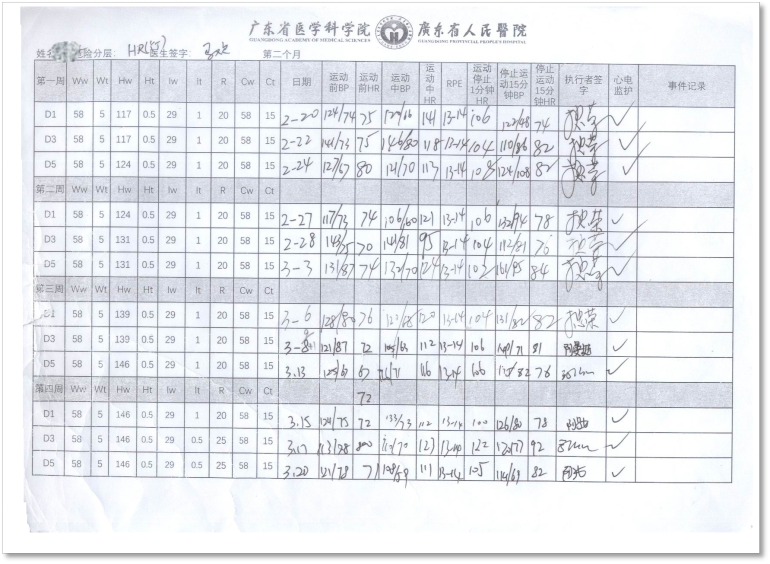 广东省医学科学院 廣東省人民醫院
GUANGDONG ACADEMY OF MEDICAL SCIENCES GUANGDONG PROVINCIAL PEOPLE'S HOSPITAL
姓名 险分层: 医生签字: 第二个月
第一周 Ww Wt Hw Ht Iw It R Cw Ct 日期 运动前BP 运动前HR 运动中BP 运动中HR RPE 运动停止1分钟HR 停止运动15分钟BP 停止运动15分钟HR 执行者签字 心电监护 事件记录
D1 58 5 117 0.5 29 1 20 58 15 2-20 124/74 75 141 13-14 106 74 ✓
D3 58 5 117 0.5 29 1 20 58 15 2-22 141/73 75 146/80 118 13-14 104 110/86 82 ✓
D5 58 5 124 0.5 29 1 20 58 15 2-24 127/67 80 121/70 113 13-14 124/108 82 ✓
第二周
D1 58 5 124 0.5 29 1 20 58 15 2-27 117/73 74 106/60 121 13-14 106 132/94 78 ✓
D3 58 5 131 0.5 29 1 20 58 15 2-28 70 141/81 95 13-14 104 112/81 ✓
D5 58 5 131 0.5 29 1 20 58 15 3-3 131/87 74 132/70 124 13-14 102 161/95 84 ✓
第三周
D1 58 5 139 0.5 29 1 20 58 15 3-6 128/80 76 120 13-14 104 131/82 82 ✓
D3 58 5 139 0.5 29 1 20 58 15 121/87 72 112 13-14 106 81 ✓
D5 58 5 146 0.5 29 1 20 58 15 3.13 67 116 13-14 106 76 ✓
第四周 72
D1 58 5 146 0.5 29 1 20 58 15 3.15 124/75 72 133/73 112 13-14 100 126/80 78 ✓
D3 58 5 146 0.5 29 0.5 25 58 15 3.17 113/78 112/70 121 122 92 ✓
D5 58 5 146 0.5 29 0.5 25 58 15 3.20 121/78 71 111 13-14 105 114/69 82 ✓